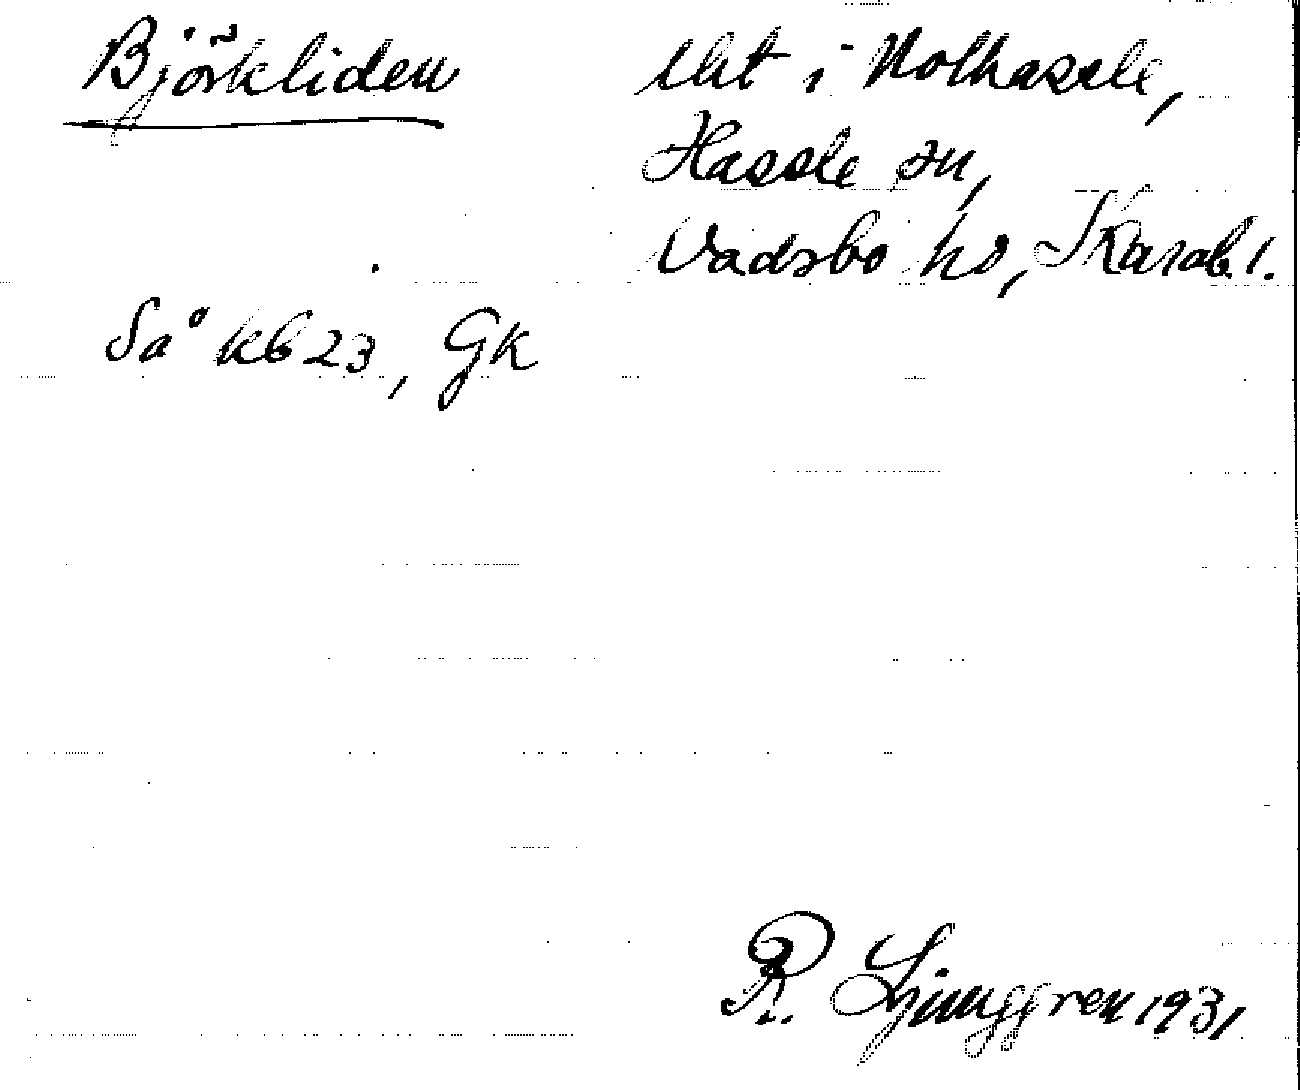 Björkliden
Uht i Nolhassle,
Hassle sn,
Vadsbo hd, Skarab. l.
Så kb 23, GK
R. Ljunggren 1931